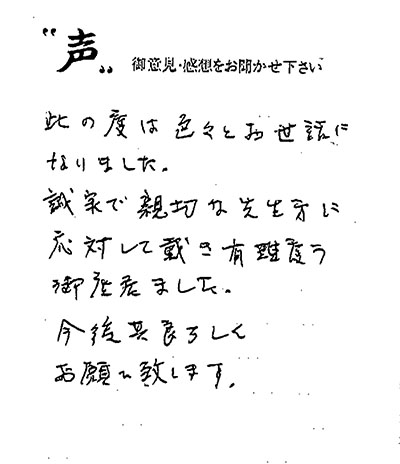 "声" 御意見・感想をお聞かせ下さい
此の度は色々とお世話に
なりました。
誠実で親切な先生方に
応対して戴き有難度う
御座居ました。
今後共良ろしく
お願い致します。